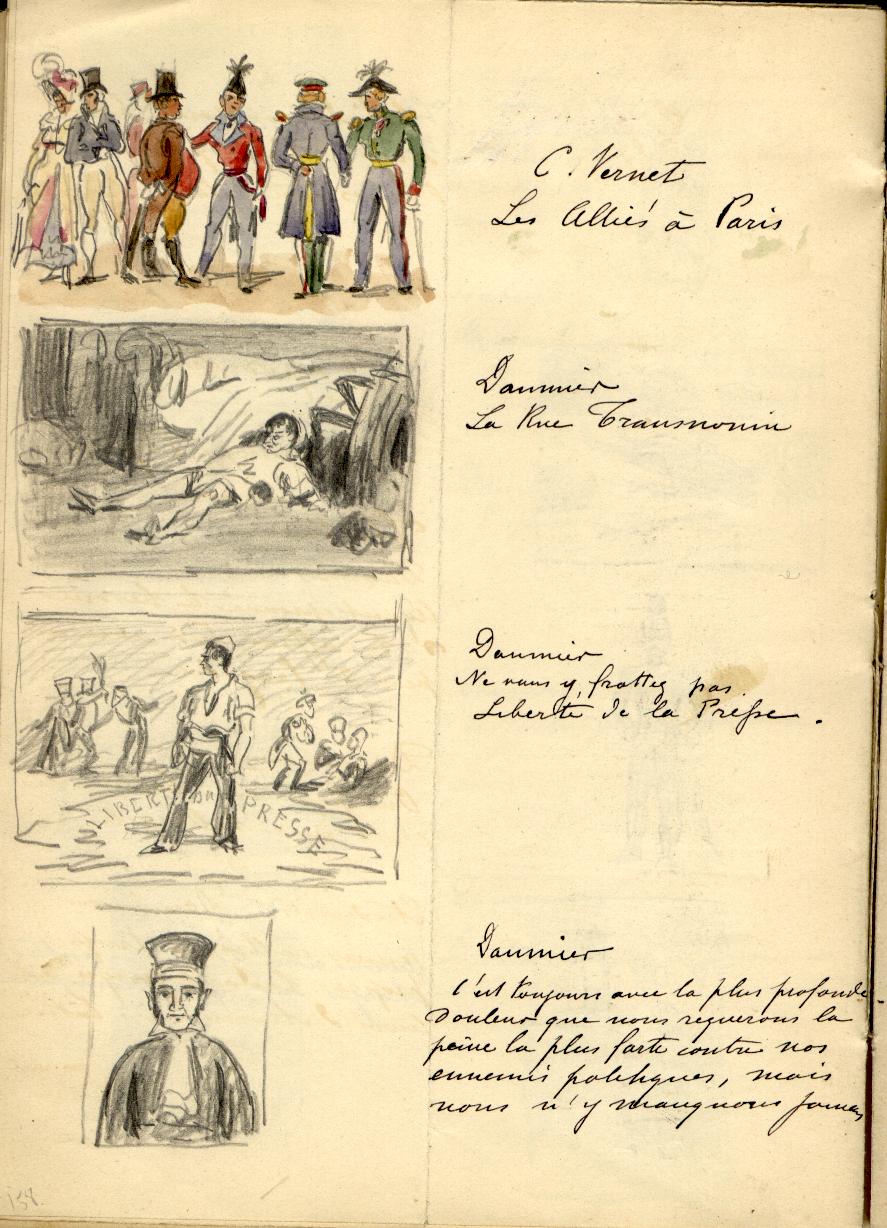 C. Vernet
Les Alliés à Paris
Daumier
La Rue Transnonin
Daumier
Ne vous y frottez pas.
Liberté de la Presse.
LIBERTÉ DE PRESSE
Daumier
C'est toujours avec la plus profonde
douleur que nous requerons la
peine la plus forte contre nos
ennemis politiques, mais
nous n'y manquons jamais
138.